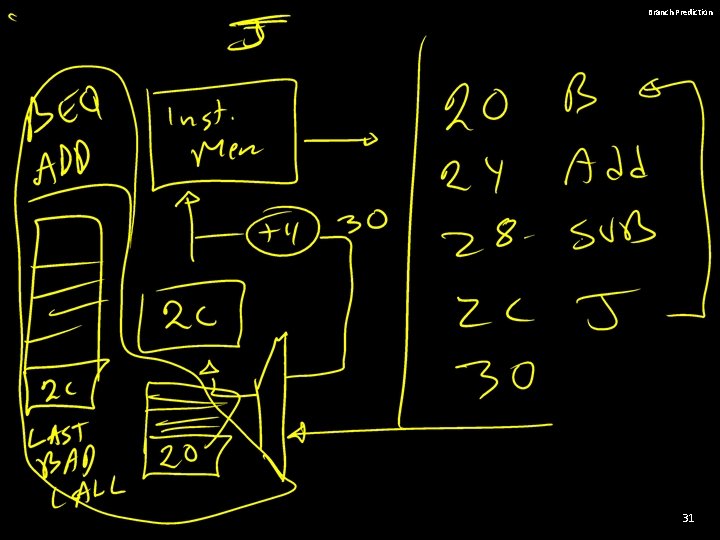 Branch Prediction
J
BEQ
ADD
Inst.
Mem
+4
30
2C
2C
LAST
BAD
CALL
20
20 B
24 Add
28- SUB
2C J
30
31